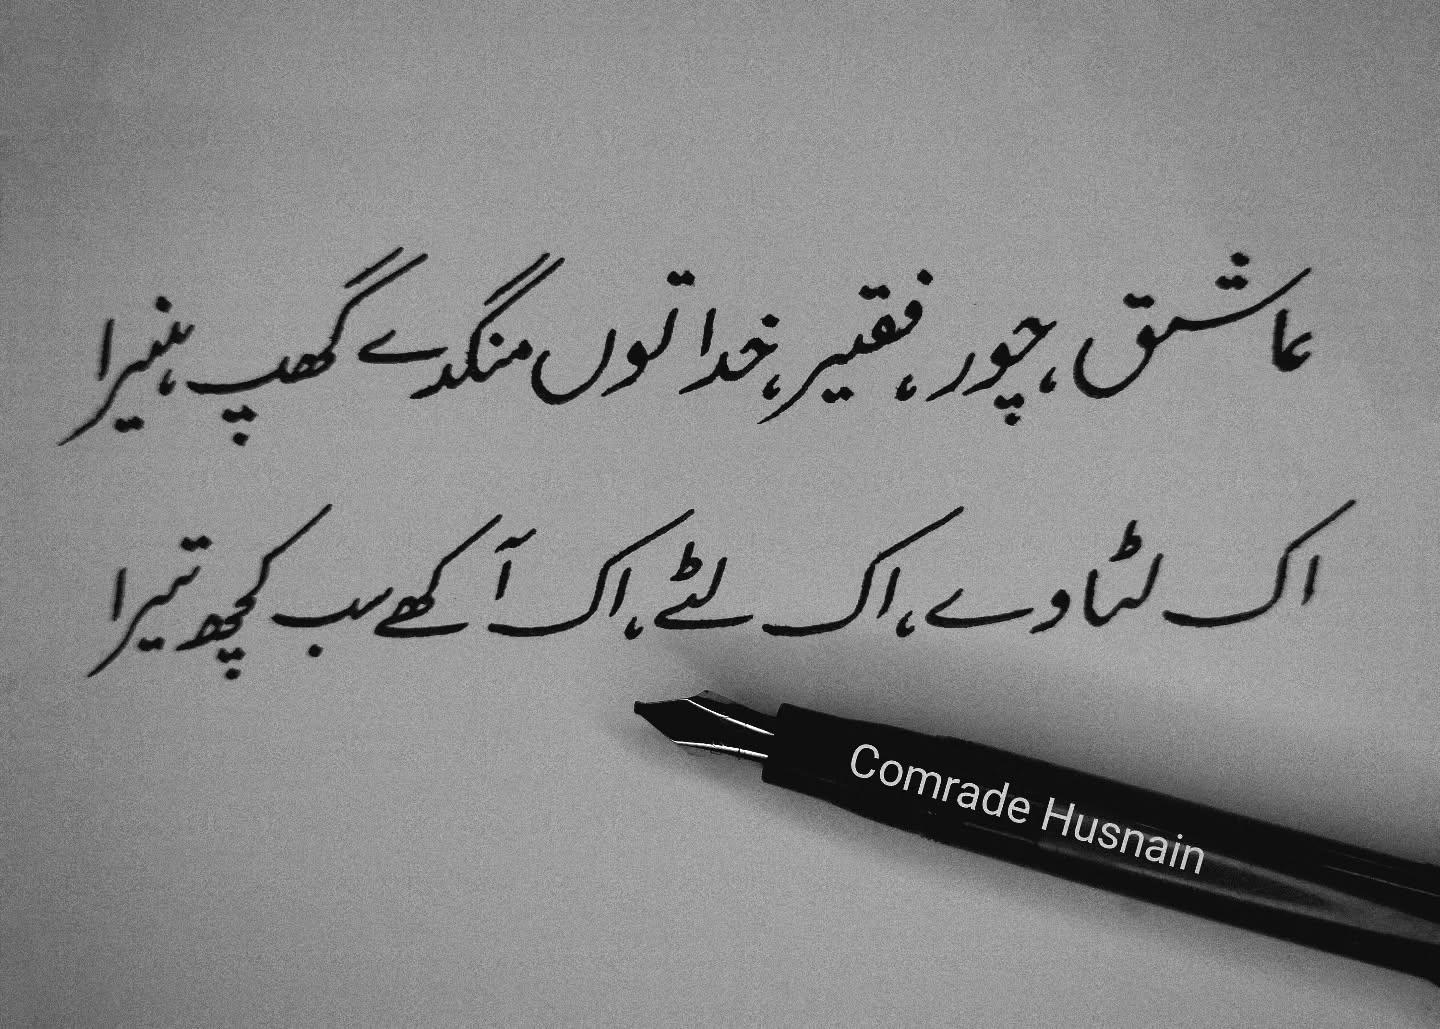 عاشق ،چور ،فقیر ،خدا توں منگدے گھپ ،ہنیرا
اک لٹاوے ،اک لٹے ،اک آکھے سب کچھ تیرا
Comrade Husnain